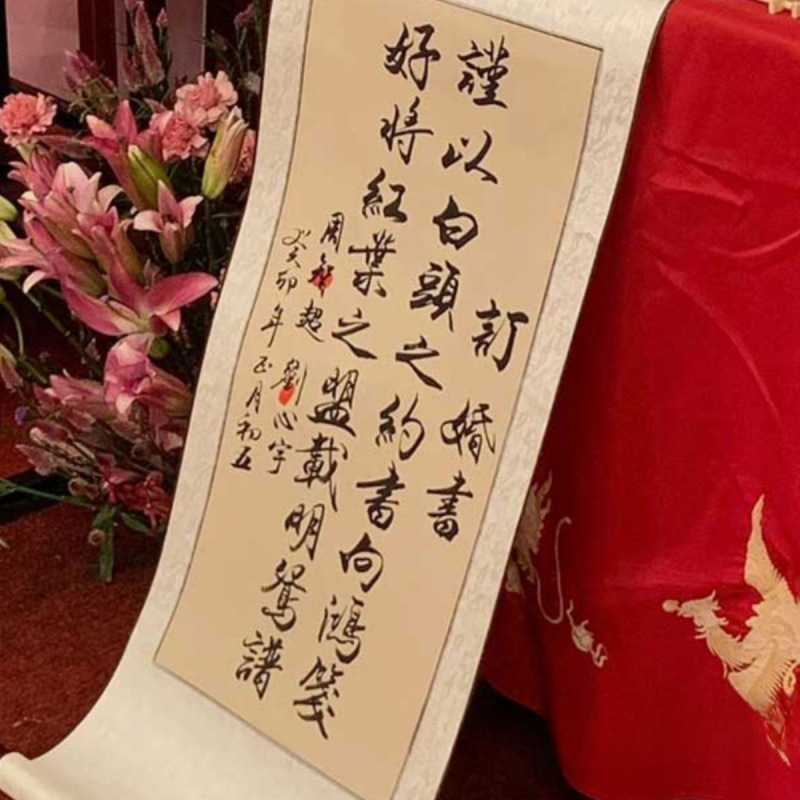 訂婚書
謹以白頭之約書向鴻箋
好将紅葉之盟載明鴛譜
周超 劉心宇
癸卯年正月初五